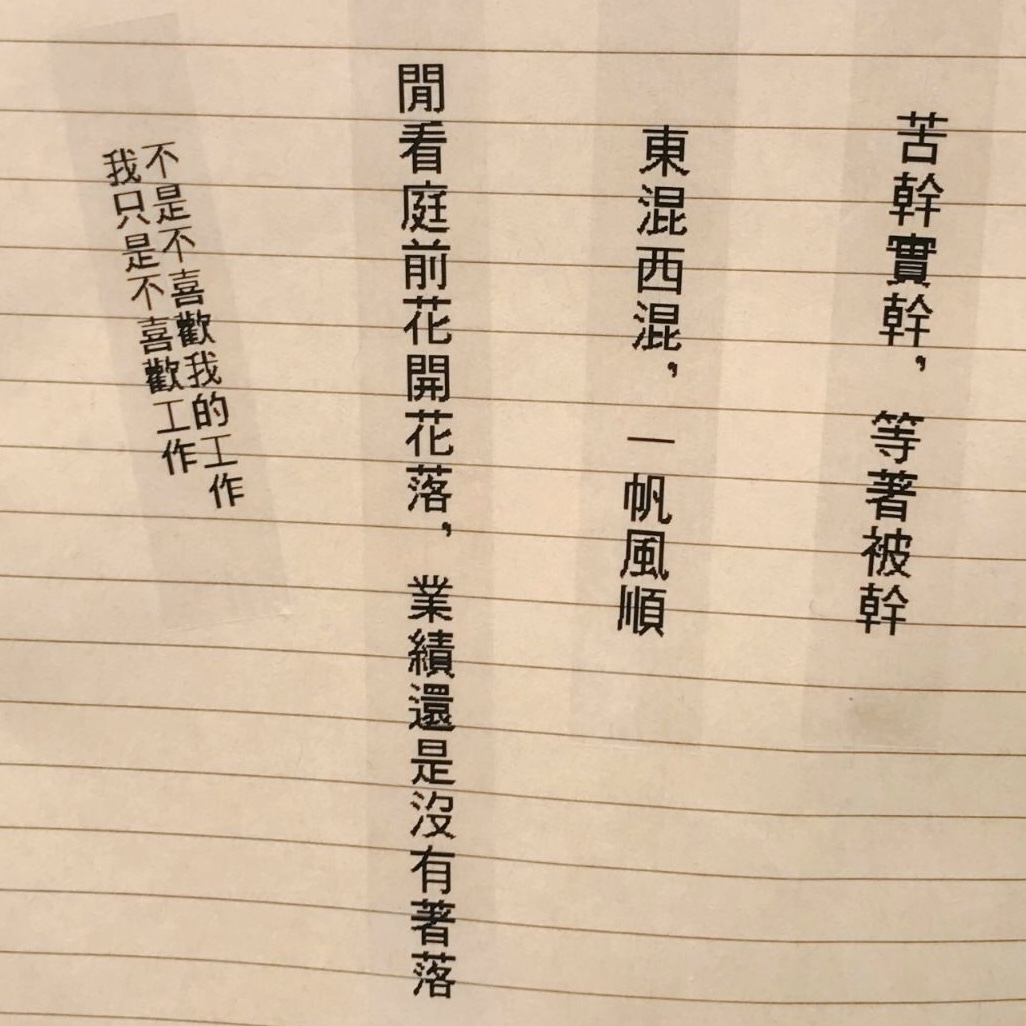 苦幹實幹，等著被幹
東混西混，一帆風順
閒看庭前花開花落，業績還是沒有著落
不是不喜歡我的工作
我只是不喜歡工作